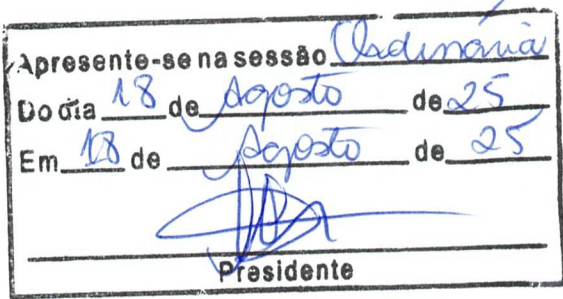 Apresente-se na sessão Ordinária
Do dia 18 de Agosto de 25
Em 18 de Agosto de 25
Presidente